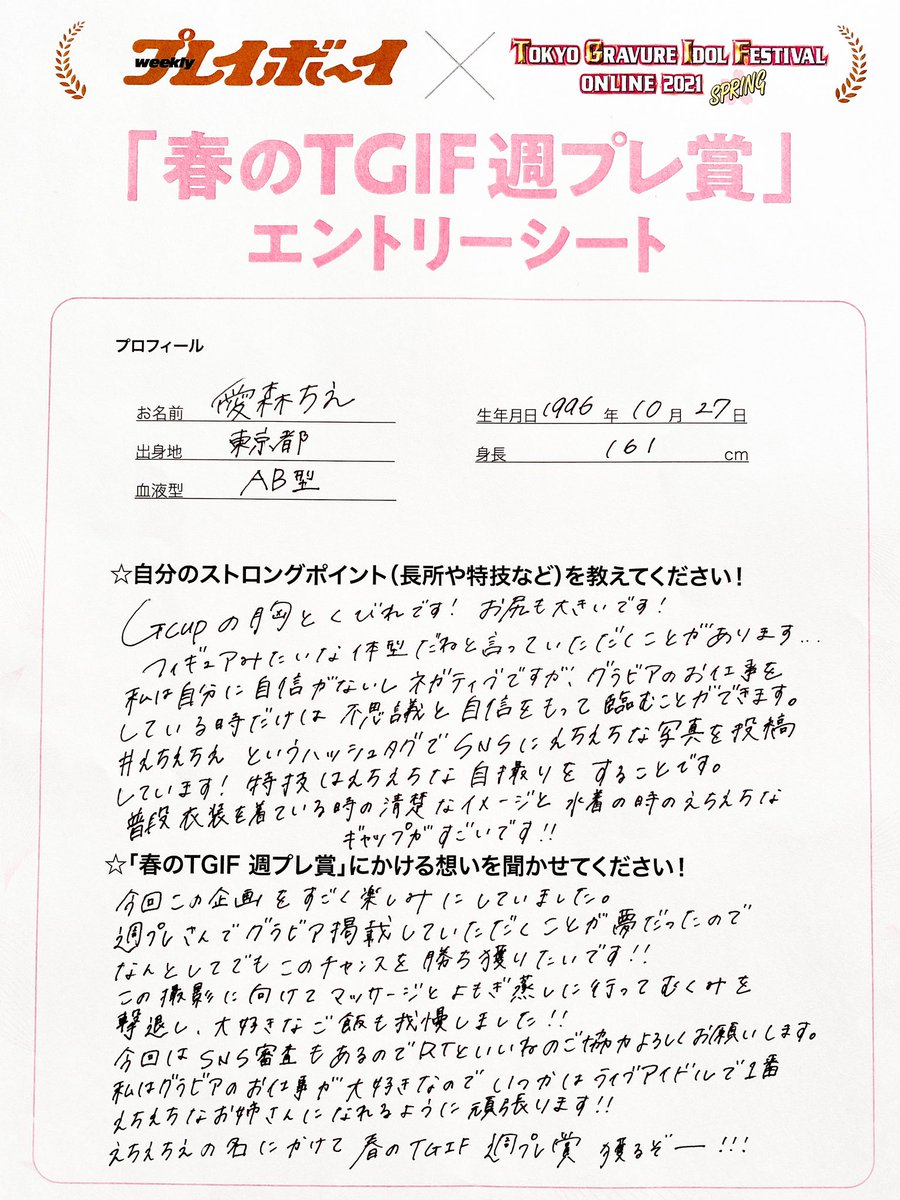 weekly プレイボーイ × TOKYO GRAVURE IDOL FESTIVAL
ONLINE 2021 SPRING
「春のTGIF 週プレ賞」
エントリーシート
プロフィール
お名前 愛森ちえ 生年月日 1996 年 10 月 27 日
出身地 東京都 身長 161 cm
血液型 AB型
☆自分のストロングポイント（長所や特技など）を教えてください！
Gcupの胸とくびれです！ お尻も大きいです！
フィギュアみたいな体型だねと言っていただくことがあります...
私は自分に自信がないしネガティブですが、グラビアのお仕事を
している時だけは不思議と自信をもって臨むことができます。
#えちえちえ というハッシュタグでSNSにえちえちな写真を投稿
しています！特技はえちえちな自撮りをすることです。
普段衣装を着ている時の清楚なイメージと水着の時のえちえちな
ギャップがすごいです!!
☆「春のTGIF 週プレ賞」にかける想いを聞かせてください！
今回この企画をすごく楽しみにしていました。
週プレさんでグラビア掲載していただくことが夢だったので
なんとしてでもこのチャンスを勝ち獲りたいです!!
この撮影に向けてマッサージとよもぎ蒸しに行ってむくみを
撃退し、大好きなご飯も我慢しました!!
今回はSNS審査もあるのでRTといいねのご協力よろしくお願いします。
私はグラビアのお仕事が大好きなのでいつかはライブアイドルで1番
えちえちなお姉さんになれるように頑張ります!!
えちえちえの名にかけて 春のTGIF 週プレ賞 獲るぞー!!!